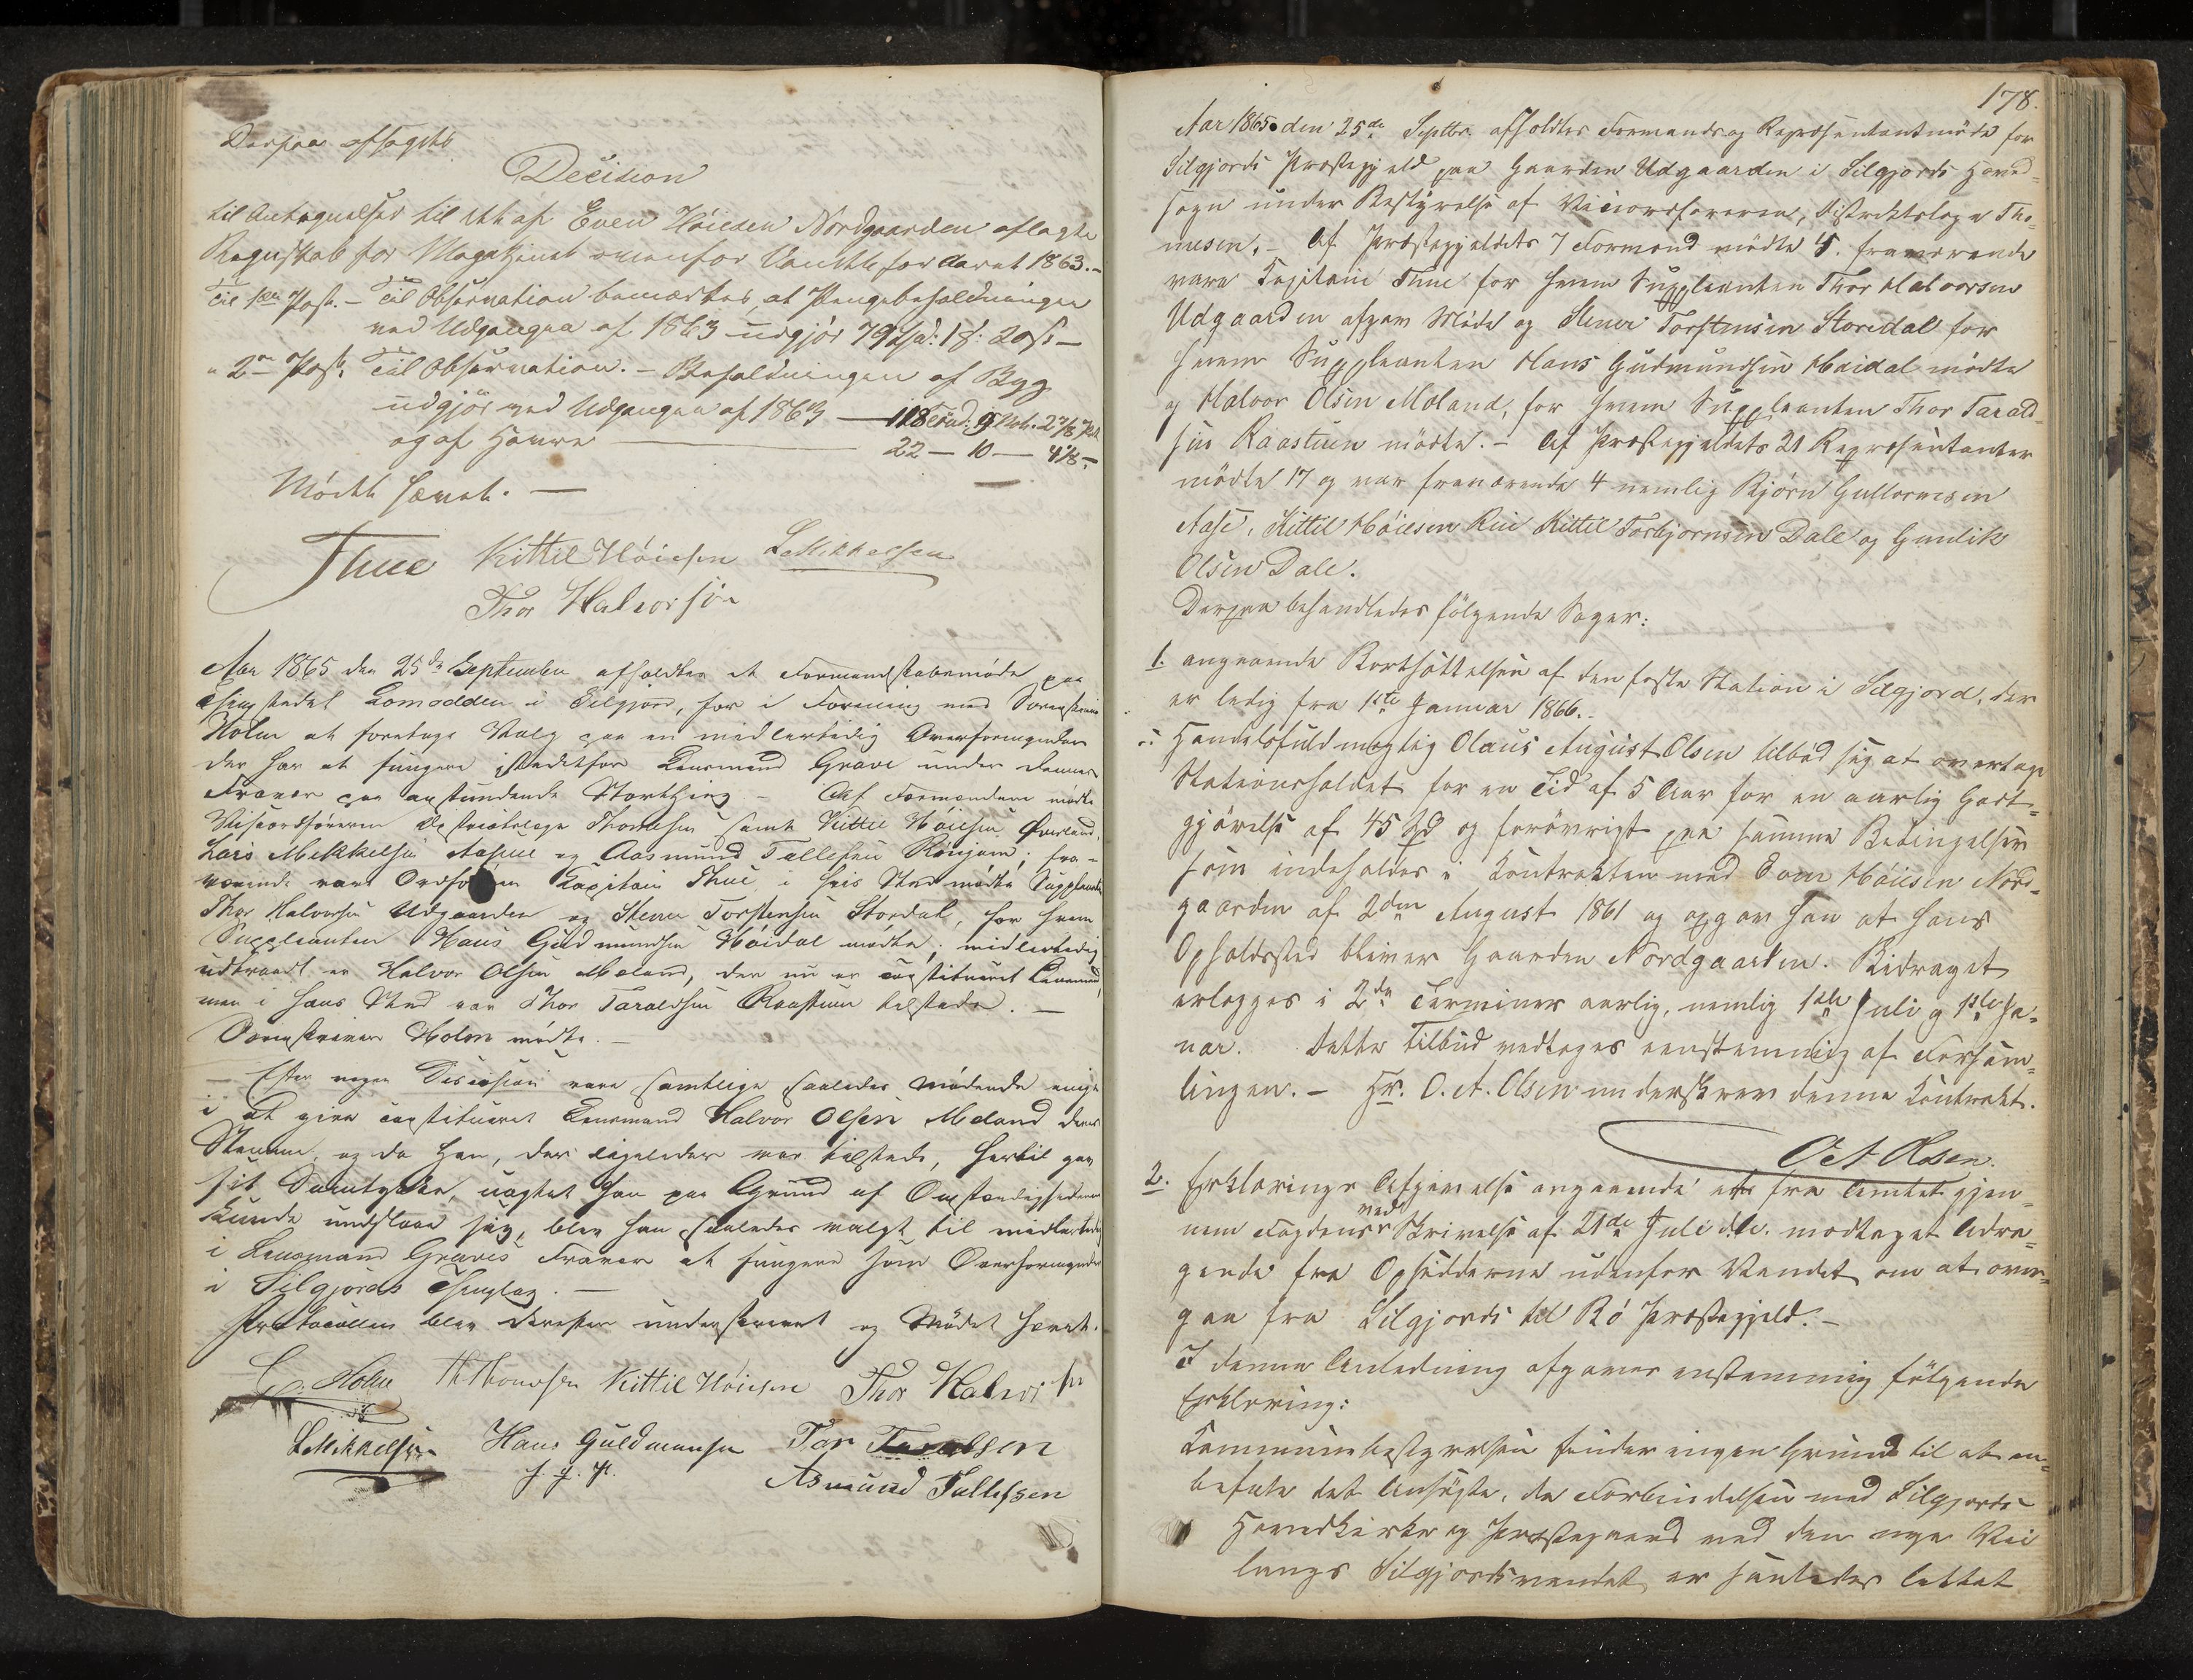 Derpaa afsagdes
Decision
til Antegnelser til det af Even Höiesen Nordgaarden aflagte
Regnskab for Magazinet ovenfor Vandet for Aaret 1863.-
Til 1ste Post. - Til Observation bemærkes, at Pengebeholdningen
ved Udgangen af 1863 udgjör 79 Spd: 1 : 20 s -
" 2den Post. Til Observation. - Beholdningen af Byg
udgjör ved Udgangen af 1863 — 118 Tönd: 9 2 7/8
og af Havre — 22 - 10 - 4 1/8 -
Mödet hævet. —
Thue Kittil Höiesen L Mikkelsen
Thor Halvorsön
Aar 1865 den 25de September afholdtes et Formandskabsmöde paa
Thingstedet Lomodden i Silgjord, for i Forening med Sorenskriver
Holm at foretage Valg paa en midlertidig Overformynder
der har at fungere istedetfor Lensmand Grave under dennes
Fravær paa anstundende Storthing - Af Formændene mödte
Viseordföreren Distriktslæge Thomesen samt Kittil Höiesen Överland,
Lars Mikkelsen Aasene og Aasmund Tallefsen Rönjom; fra-
værende vare Ordföreren Kapitain Thue, i hvis Sted mödte Suppleanten
Thor Halvorsen Udgaarden og Stener Torstensen Stordal, for hvem
Suppleanten Hans Gudmundsen Höidal mödte; midlertidig
udtraadt er Halvor Olsen Moland, der nu er constitueret Lensmand,
men i hans Sted var Thor Taraldsen Raastuen tilstede. —
Sorenskriver Holm mödte. —
— Efter nogen Discusion vare samtlige saaledes Mödende enige
i at give constitueret Lensmand Halvor Olsen Moland deres
Stemme, og da Han, der ligeledes var tilstede, hertil gav
sit Samtykke, uagtet han paa Grund af Omstændighederne
kunde undslaae sig, blev han saaledes valgt til midlertidig
i Lensmand Graves Fravær at fungere som Overformynder
i Silgjords Thinglag. —
Protocollen blev derefter underskrevet og Mödet hævet.
Holm Th Thomesen Kittil Höiesen Thor Halvorsen
L Mikkelsen Hans Guldmunsen Tor Taralsen
Asmund Tallefsen
178.
Aar 1865 den 25de Septbr. afholdtes Formands og Repræsentantmöde for
Silgjords Præstegjeld paa Gaarden Udgaarden i Silgjords Hoved-
sogn under Bestyrelse af Viceordföreren, Distriktslæge Tho-
mesen. - Af Præstegjeldets 7 Formænd mödte 4. fraværende
vare Kapitain Thue for hvem Suppleanten Thor Halvorsen
Udgaarden afgav Möde og Stener Torstensen Storedal for
hvem Suppleanten Hans Gudmundsen Höidal mödte
og Halvor Olsen Moland, for hvem Suppleanten Thor Tarald-
sen Raastuen mödte. - Af Præstegjeldets 21 Repræsentanter
mödte 17 og var fraværende 4 nemlig Björn Guttormsen
Aase, Kittil Höiesen Rui Kittil Torbjörnsen Dale og Gunlik
Olsen Dale.
Derpaa behandledes fölgende Sager:
1. angaaende Bortsættelsen af den faste Station i Silgjord, der
er ledig fra 1ste Januar 1866.
Handelsfuldmægtig Olaus August Olsen tilböd sig at overtage
Stationsholdet for en Tid af 5 Aar for en aarlig Godt-
gjörelse af 45 Spd og forövrigt paa samme Betingelser
som indeholdes i Kontrakten med Even Höiesen Nord-
gaarden af 2den August 1861 og opgav han at hans
Opholdssted bliver Gaarden Nordgaarden. Bidraget
erlægges i 2de Terminer aarlig, nemlig 1ste Juli og 1ste Ja-
nuar. Dette Tilbud vedtoges eenstemmig af Forsam-
lingen. - Hr. O. A. Olsen underskrev denne Kontrakt.
O A Olsen.
2. Erklærings Afgivelse angaaende et fra Amtet gjen-
nem Fogdens ved Skrivelse af 21de Juli d.A. modtaget Andra-
gende fra Opsidderne udenfor Vandet om at over-
gaa fra Silgjords til Bö Præstegjeld. -
I denne Anledning afgaves enstemmig fölgende
Erklæring:
Kommunebestyrelsen finder ingen Grund til at an-
befale det Ansögte, da Forbindelsen med Silgjords
Hovedkirke og Præstegaard ved den nye Vei
langs Silgjordsvandet er saaledes lettet